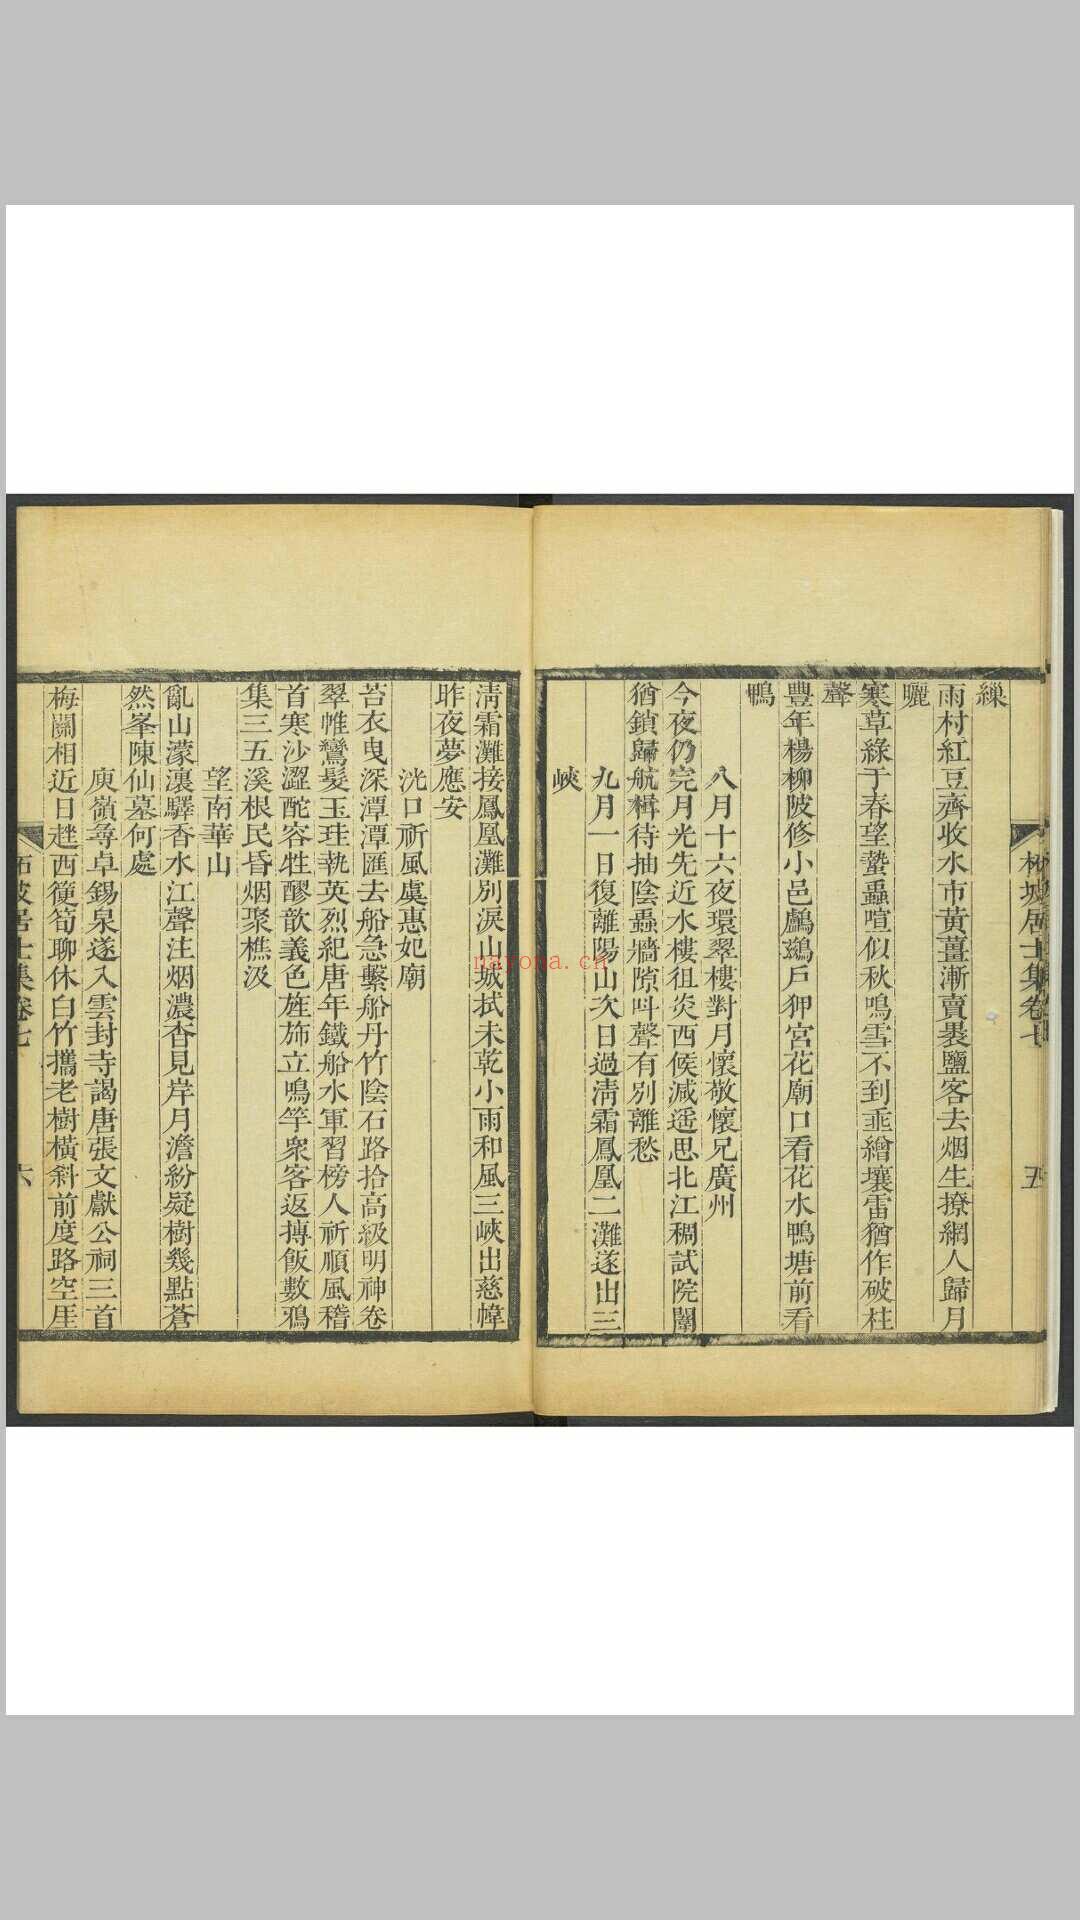 繅
雨村紅豆齊收水市黃薑漸賣褁鹽客去烟生撩網人歸月
曬
寒草綠于春望蟄蟲喧似秋鳴雪不到亜繒壤雷猶作破柱
聲
豐年楊柳陂修小邑鸕鷀戶狎宮花廟口看花水鴨塘前看
鴨
八月十六夜環翠樓對月懷敬懷兄廣州
今夜仍完月光先近水樓徂炎西候減遥思北江稠試院闈
猶鎖歸航楫待抽陰蟲墻隙呌聲有别離愁
九月一日復離陽山次日過淸霜鳳凰二灘遂出三
峽
柘坡居士集卷七
五
淸霜灘接鳳凰灘别淚山城拭未乾小雨和風三峽出慈幃
昨夜夢應安
洸口祈風虞惠妃廟
苔衣曳深潭潭匯去船急繫船丹竹陰石路拾高級明神卷
翠帷鸞髮玉珪執英烈紀唐年鐵船水軍習榜人祈順風稽
首寒沙澀酡容牲醪歆義色旌斾立鳴竽衆客返摶飯數鴉
集三五溪根民昏烟聚樵汲
望南華山
亂山濛瀼驛香水江聲注烟濃杳見岸月澹紛疑樹幾點蒼
然峯陳仙墓何處
庾嶺尋卓錫泉遂入雲封寺謁唐張文獻公祠三首
梅關相近日趖西箯筍聊休白竹攜老樹橫斜前度路空厓
柘坡居士集卷七
六
nayona.cn